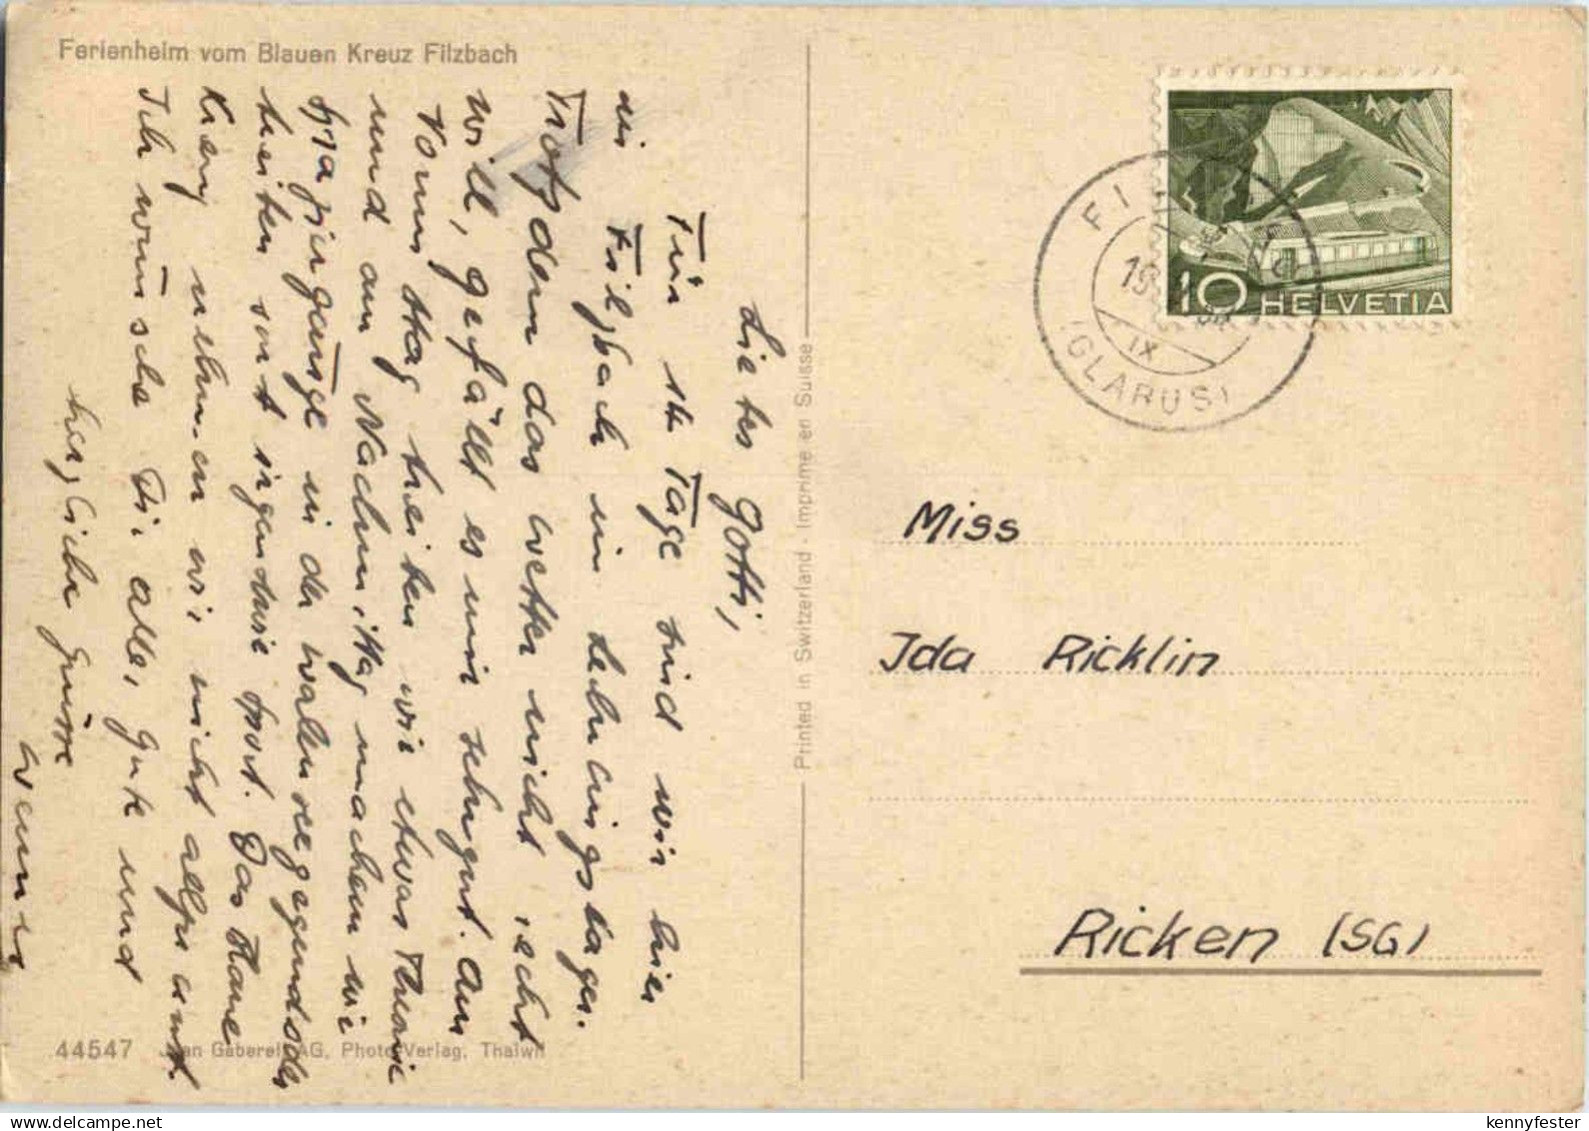 Ferienheim vom Blauen Kreuz Filzbach
Liebes Gotti,
Für 14 Tage sind wir hier
in Filzbach im Lehrlingslager.
Trotzdem das Wetter nicht recht
will, gefällt es mir sehr gut. Am
Vormittag treiben wir etwas Theorie
und am Nachmittag machen wir
Spaziergänge in der Walenseegegend oder
treiben sonst irgendwie Sport. Das
nehmen wir nicht allzu ernst.
Ich wünsche Dir alles Gute und
herzliche Grüsse
Werner
44547 Jean Gaberell AG, Photo-Verlag, Thalwil
Printed in Switzerland - Imprimé en Suisse
10 HELVETIA
FI
19
IX
(GLARUS)
Miss
Ida Ricklin
Ricken (SG)
kennyfester